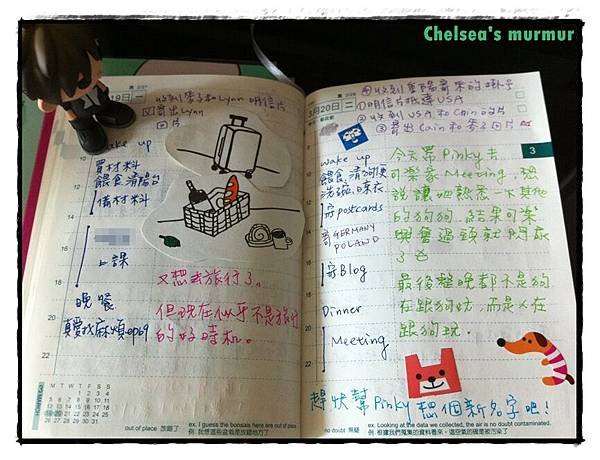 Chelsea's murmur
19日 二
收到麥子和Lynn 明信片
寄出Lynn
回片
wake up
買材料
餵食,清貓台
備材料
上課
晚餐
真愛找麻煩ep69
又想去旅行了。
但現在似乎不是旅行
的好時机。
10
12
14
16
18
20
22
03 MARCH
M T W T F S S
out of place 放錯了
ex. I guess the bonsais here are out of place.
例 我想這些盆栽是放錯地方了
3月20日 三
①明信片抵達USA
②收到USA和Cain的片
③寄出Cain和麥子回片
3
wake up
餵食,清狗便
洗碗,晾衣
寄postcards
寄GERMANY
POLAND
寄Blog
Dinner
Meeting
22
今天帶Pinky去
可樂家Meeting,
說讓她熟悉一下其他
的狗狗,結果可樂
興奮過頭就
了
最後整晚都不是狗
在跟狗玩,而是人在
跟狗玩.
趕快幫Pinky想個新名字吧!
no doubt 無疑
ex. Looking at the data we collected, the air is no doubt contaminated.
例 根據我們蒐集的資料看來,這空氣的確是被污染了